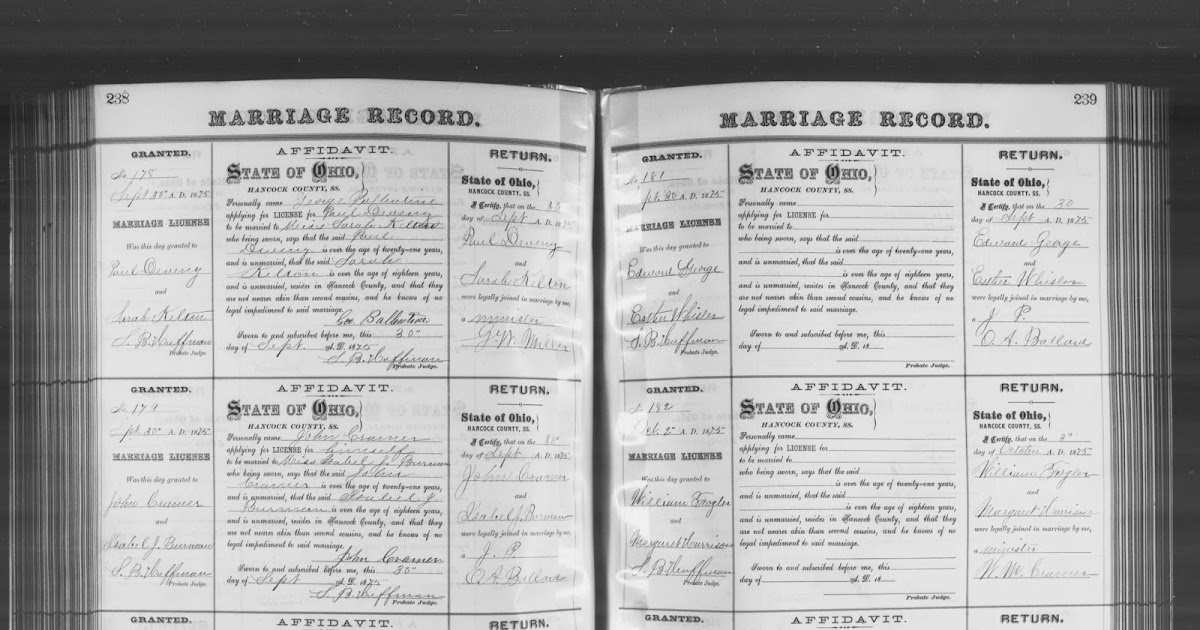 238
MARRIAGE RECORD.
GRANTED.
No. 178
Sept 30" A. D. 1875
MARRIAGE LICENSE
Was this day granted to
Paul Deveny
and
Sarah Kelton
S. B. Huffman
Probate Judge.
AFFIDAVIT.
STATE OF OHIO,
HANCOCK COUNTY, SS.
Personally came George Ballentine
applying for LICENSE for Paul Deveny
to be married to Miss Sarah Kelton
who being sworn, says that the said Paul
Deveny is over the age of twenty-one years,
and is unmarried, that the said Sarah
Kelton is over the age of eighteen years,
and is unmarried, resides in Hancock County, and that they
are not nearer akin than second cousins, and he knows of no
legal impediment to said marriage.
Geo. Ballentine
Sworn to and subscribed before me, this 30"
day of Sept. A.D. 1875
S. B. Huffman
Probate Judge.
RETURN.
State of Ohio,
HANCOCK COUNTY, SS.
I Certify, that on the 30
day of Sept A. D. 1875
Paul Deveny
and
Sarah Kelton
were legally joined in marriage by me,
a minister
G. W. Miller
GRANTED.
No. 179
Sept. 30" A. D. 1875
MARRIAGE LICENSE
Was this day granted to
John Cramer
and
Isabel J. Burman
S. B. Huffman
Probate Judge.
AFFIDAVIT.
STATE OF OHIO,
HANCOCK COUNTY, SS.
Personally came John Cramer
applying for LICENSE for himself
to be married to Miss Isabel J. Burman
who being sworn, says that the said John
Cramer is over the age of twenty-one years,
and is unmarried, that the said Isabel J.
Burman is over the age of eighteen years,
and is unmarried, resides in Hancock County, and that they
are not nearer akin than second cousins, and he knows of no
legal impediment to said marriage.
John Cramer
Sworn to and subscribed before me, this 30"
day of Sept A. D. 1875
S. B. Huffman
Probate Judge.
RETURN.
State of Ohio,
HANCOCK COUNTY, SS.
I Certify, that on the 30"
day of Sept A. D. 1875
John Cramer
and
Isabel J. Burman
were legally joined in marriage by me,
a J. P.
O. A. Ballard
GRANTED.
AFFIDAVIT.
RETURN.
239
MARRIAGE RECORD.
GRANTED.
No. 181
pt. 30 A. D. 1875
MARRIAGE LICENSE
Was this day granted to
Edward George
and
Esther Whisler
S. B. Huffman
Probate Judge.
AFFIDAVIT.
STATE OF OHIO,
HANCOCK COUNTY, SS.
Personally came
applying for LICENSE for
to be married to
who being sworn, says that the said
is over the age of twenty-one years,
and is unmarried, that the said
is over the age of eighteen years,
and is unmarried, resides in Hancock County, and that they
are not nearer akin than second cousins, and he knows of no
legal impediment to said marriage.
Sworn to and subscribed before me, this
day of A. D. 18
Probate Judge.
RETURN.
State of Ohio,
HANCOCK COUNTY, SS.
I Certify, that on the 30
day of Sept A. D. 1875
Edward George
and
Esther Whisler
were legally joined in marriage by me,
a J. P.
O. A. Ballard
GRANTED.
No. 182
Oct. 2" A. D. 1875
MARRIAGE LICENSE
Was this day granted to
William
and
Margaret Harrison
S. B. Huffman
Probate Judge.
AFFIDAVIT.
STATE OF OHIO,
HANCOCK COUNTY, SS.
Personally came
applying for LICENSE for
to be married to
who being sworn, says that the said
is over the age of twenty-one years,
and is unmarried, that the said
is over the age of eighteen years,
and is unmarried, resides in Hancock County, and that they
are not nearer akin than second cousins, and he knows of no
legal impediment to said marriage.
Sworn to and subscribed before me, this
day of A. D. 18
Probate Judge.
RETURN.
State of Ohio,
HANCOCK COUNTY, SS.
I Certify, that on the
day of October A. D. 1875
William
and
Margaret Harrison
were legally joined in marriage by me,
a minister
N. M. Cramer
GRANTED.
AFFIDAVIT.
RETURN.